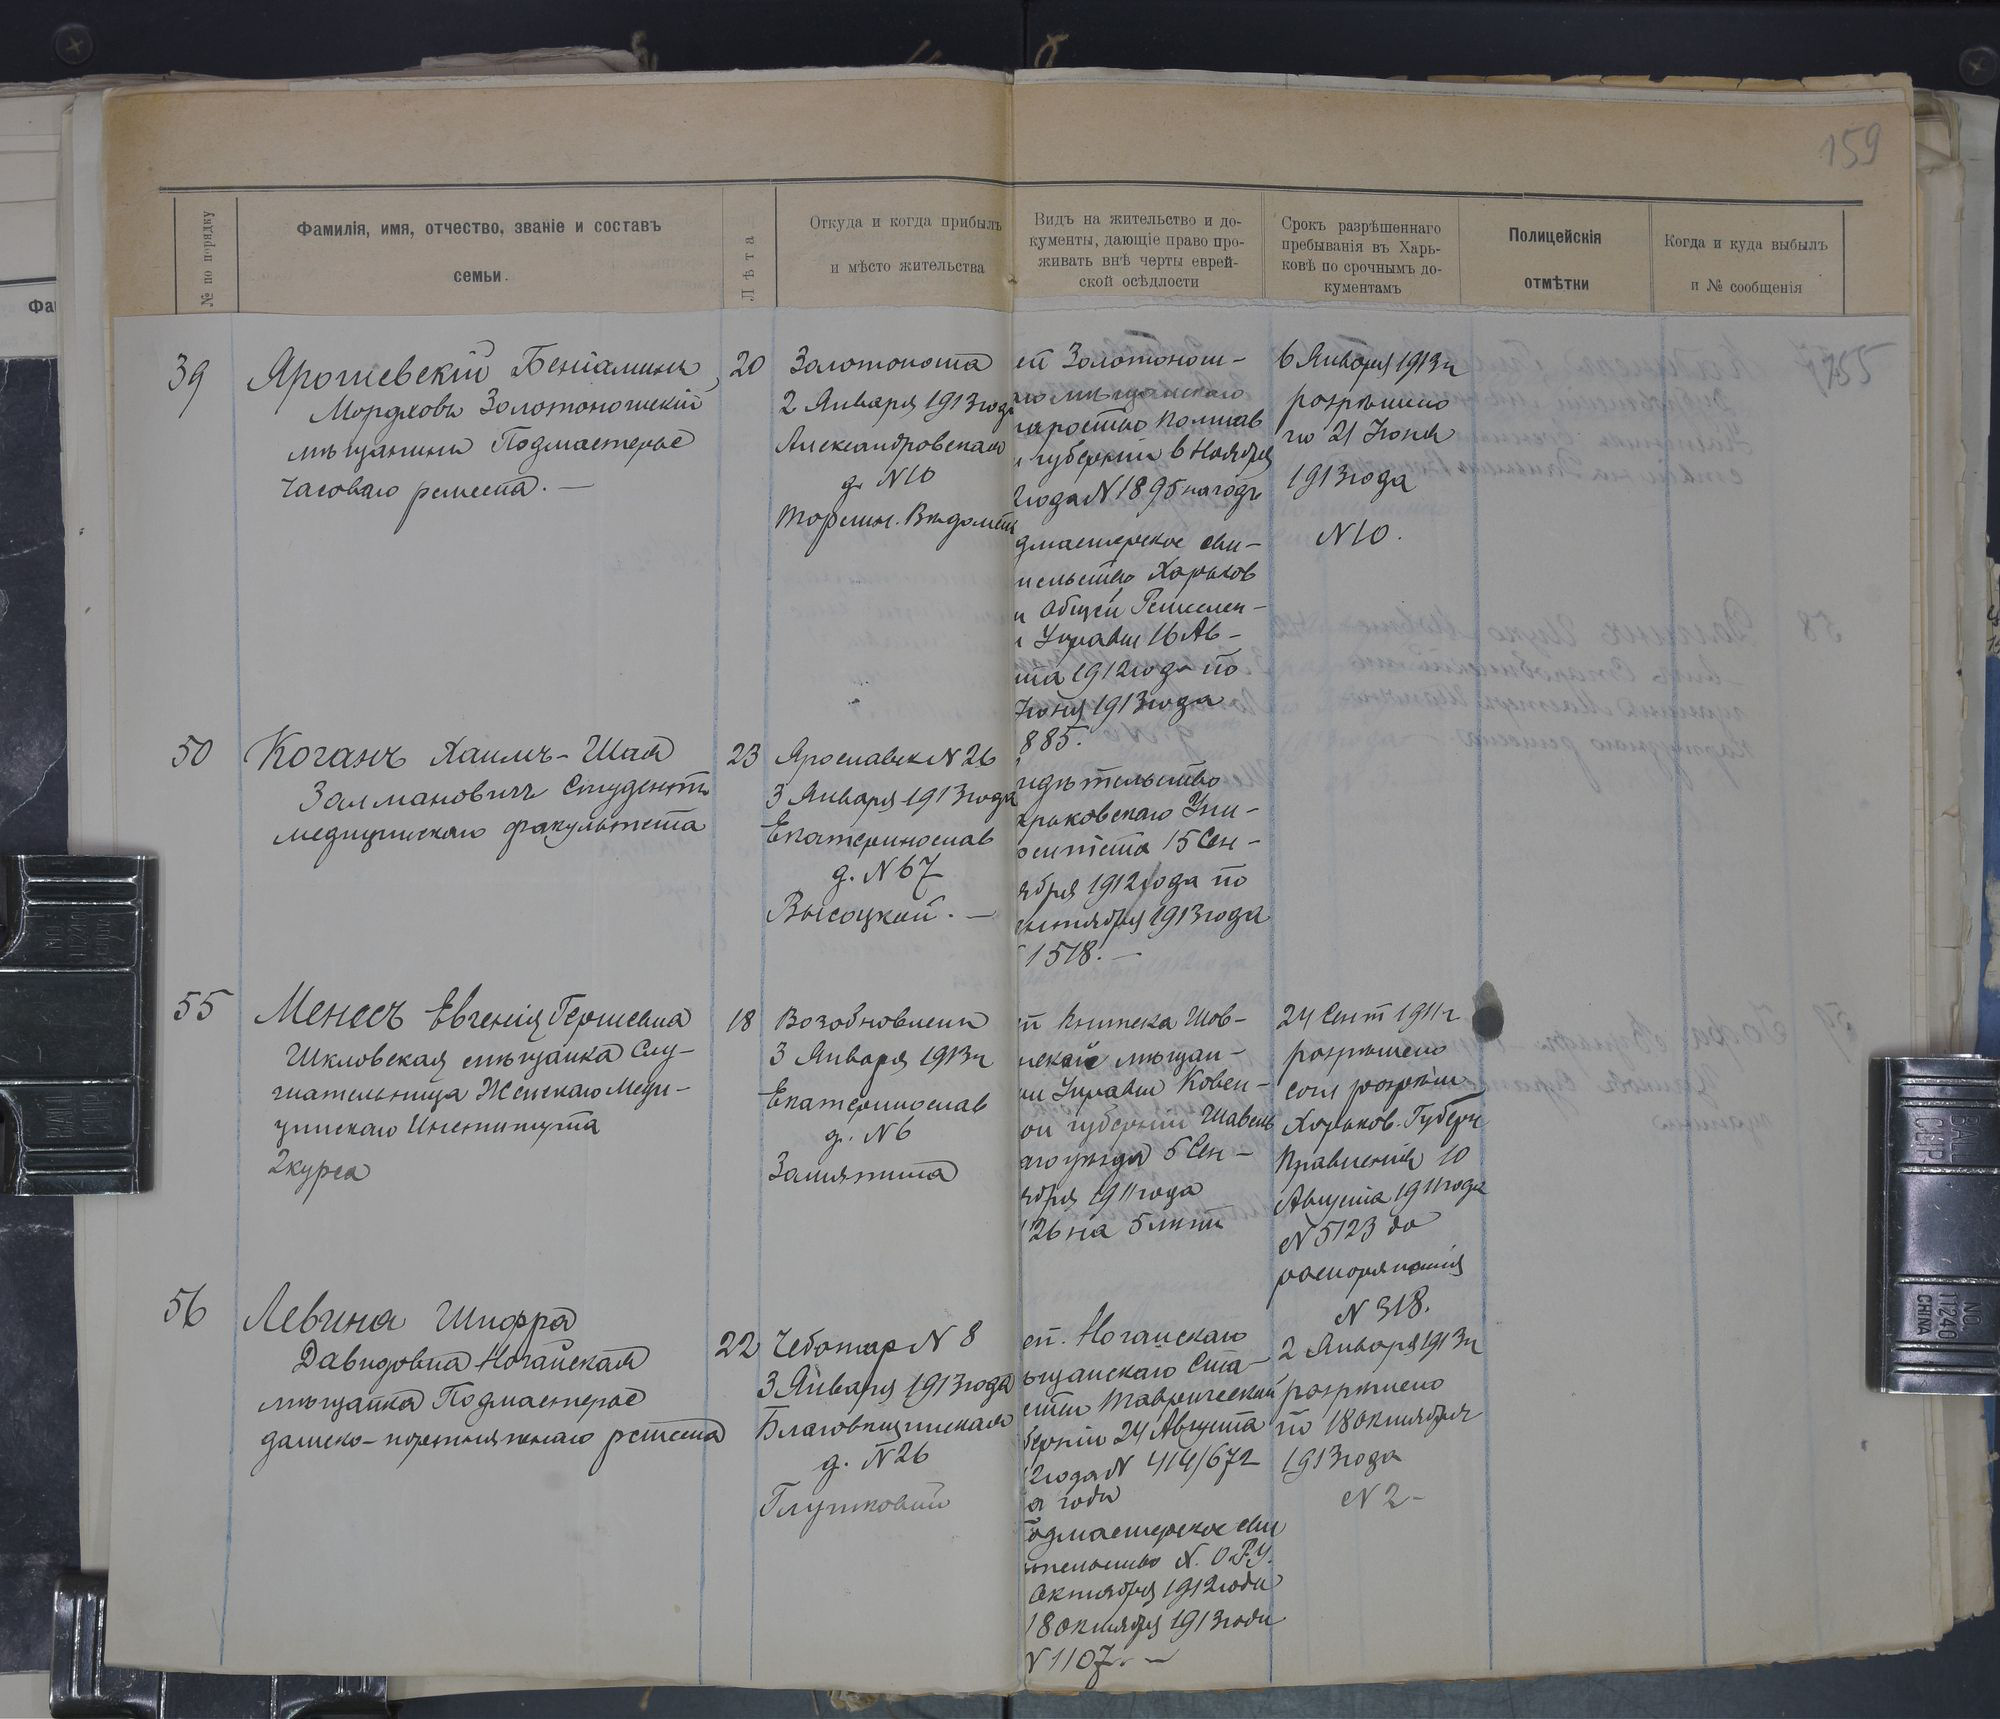 159
№ по порядку
Фамилія, имя, отчество, званіе и составъ
семьи.
Лѣта
Откуда и когда прибылъ
и мѣсто жительства
Видъ на жительство и до-
кументы, дающіе право про-
живать внѣ черты еврей-
ской осѣдлости
Срокъ разрѣшеннаго
пребыванія въ Харь-
ковѣ по срочнымъ до-
кументамъ
Полицейскія
отмѣтки
Когда и куда выбылъ
и № сообщенія
39
Ярошевскій Беніаминъ
Мордховъ Золотоношскій
мѣщанинъ Подмастерье
часоваго ремесла. —
20
Золотоноша
2 Января 1913 года
Александровская
д. N 10
ей Золотонош-
аго мѣщанскаго
таростью Полтав
и губерніи 6 Ноября
2 года N 1895 на годъ
дмастерское сви-
тельство Харьков
й Общей Ремеслен-
й Управы 16 Ав-
ста 1912 года по
Іюня 1913 года
885.
6 Января 1913 г
разрѣшено
по 21 Іюня
1913 года
N 10.
50
Коганъ Хаимъ-Шая
Залмановичъ Студентъ
медицинскаго факультета
23
Ярославск N 26
3 Января 1913 года
Екатеринослав
д. N 67
Высоцкой. —
идѣтельство
арьковскаго Уни-
рситета 15 Сен-
ября 1912 года по
ентября 1913 года
1518. —
55
Менесъ Евгенія Гершевна
Шкловская мѣщанка Слу-
шательница Женскаго Меди-
цинскаго Института
2 курса
18
Возобновлены
3 Января 1913 г
Екатеринослав
д. N 6
Замятина
й книжка Шов-
нской мѣщан-
ой Управы Ковен-
ой губерніи Шавель
аго уѣзда 5 Сен-
ября 1911 года
126 на 5 лѣтъ
24 Сент 1911 г
разрѣшено
согл разрѣш
Харьков. Губерн
Правленія 10
Августа 1911 года
N 5123 до
распоряженія
N 318.
56
Левина Шифра
Давидовна Ногайская
мѣщанка Подмастерье
дамско-портняжнаго ремесла
22
Чеботар N 8
3 Января 1913 года
Благовѣщенская
д. N 26
ей. Ногайскаго
ѣщанскаго Ста-
стью Таврической
берніи 24 Августа
2 года N 414/672
а годъ
одмастерское сви
тельство Х. О.Р.У.
Октября 1912 года
18 октября 1913 года
N 1107. —
2 Января 1913 г
разрѣшено
по 18 октября
1913 года
N 2 -